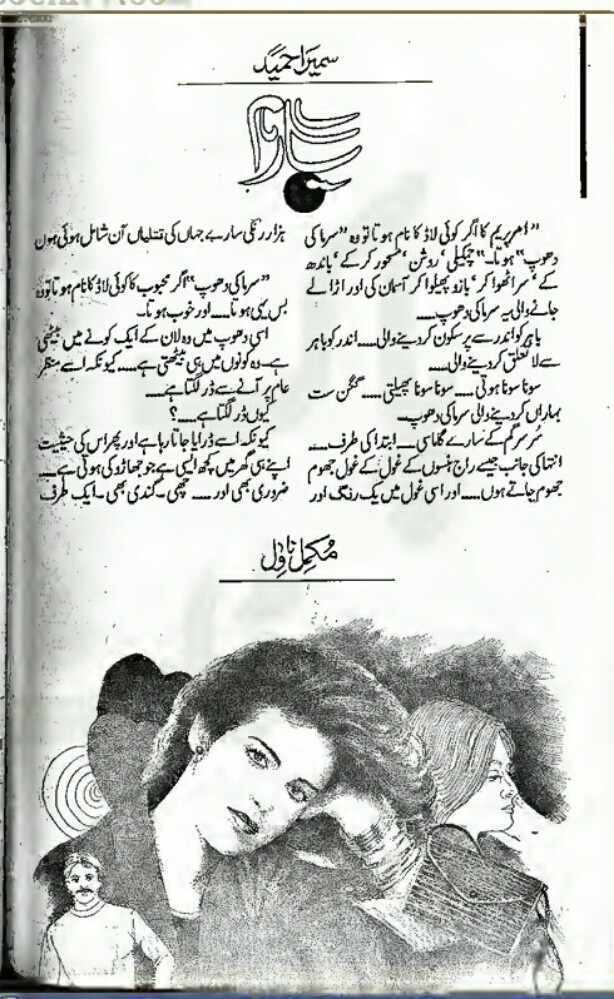 سمیرا حمید
یارم
"امرپریم کا اگر کوئی لاڈ کا نام ہوتا تو وہ "سرما کی
دھوپ" ہوتا۔" چمکیلی' روشن' مسحور کر کے' باندھ
کے' سر اٹھوا کر' بازو پھیلوا کر آسمان کی اور اڑا لے
جانے والی یہ سرما کی دھوپ.....
باہر کو اندر سے پرسکون کر دینے والی..... اندر کو باہر
سے لا تعلق کر دینے والی.....
سونا سونا ہوتی..... سونا سونا پھیلتی..... گگن ست
بہاراں کر دینے والی سرما کی دھوپ۔
سُر سرگم کے سارے گاماسی..... ابتدا کی طرف.....
انتہا کی جانب جیسے راج ہنسوں کے غول کے غول جھوم
جھوم جاتے ہوں..... اور اسی غول میں یک رنگ اور
ہزار رنگی سارے جہاں کی تتلیاں آن شامل ہوئی ہوں
"سرما کی دھوپ" اگر محبوب کا کوئی لاڈ کا نام ہوتا تو وہ
بس یہی ہوتا..... اور خوب ہوتا۔
اسی دھوپ میں وہ لان کے ایک کونے میں بیٹھی
ہے۔ وہ کونوں میں ہی بیٹھتی ہے..... کیونکہ اسے منظر
عام پر آنے سے ڈر لگتا ہے.....
کیوں ڈر لگتا ہے.....؟
کیونکہ اسے ڈرایا جاتا رہا ہے اور پھر اس کی حیثیت
اپنے ہی گھر میں کچھ ایسی ہے جو جھاڑو کی ہوتی ہے.....
ضروری بھی اور..... چھپی۔ گندی بھی۔ ایک طرف
مُکمل ناول